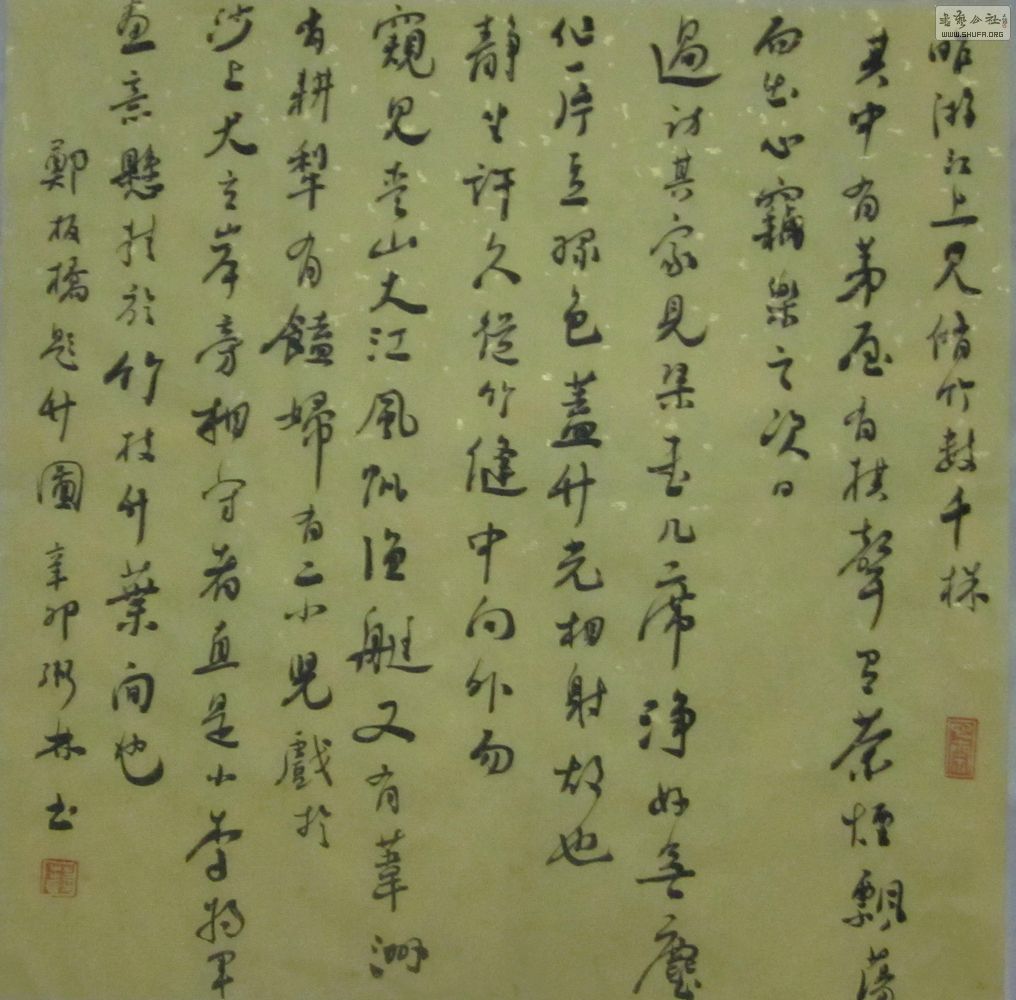 昨游江上見脩竹數千株
其中有茅屋有棋聲有茶煙飄蕩
而出心竊樂之次日
過訪其家見琴書几席淨好無塵
作一片豆綠色蓋竹光相射故也
靜坐許久從竹縫中向外而
窺見青山大江風帆漁艇又有葦洲
有耕犁有饁婦有二小兒戲於
沙上犬立岸旁相守者直是小李將軍
畫意懸挂於竹枝竹葉間也
鄭板橋題竹圖 辛卯 林書
書藝公社
WWW.SHUFA.ORG